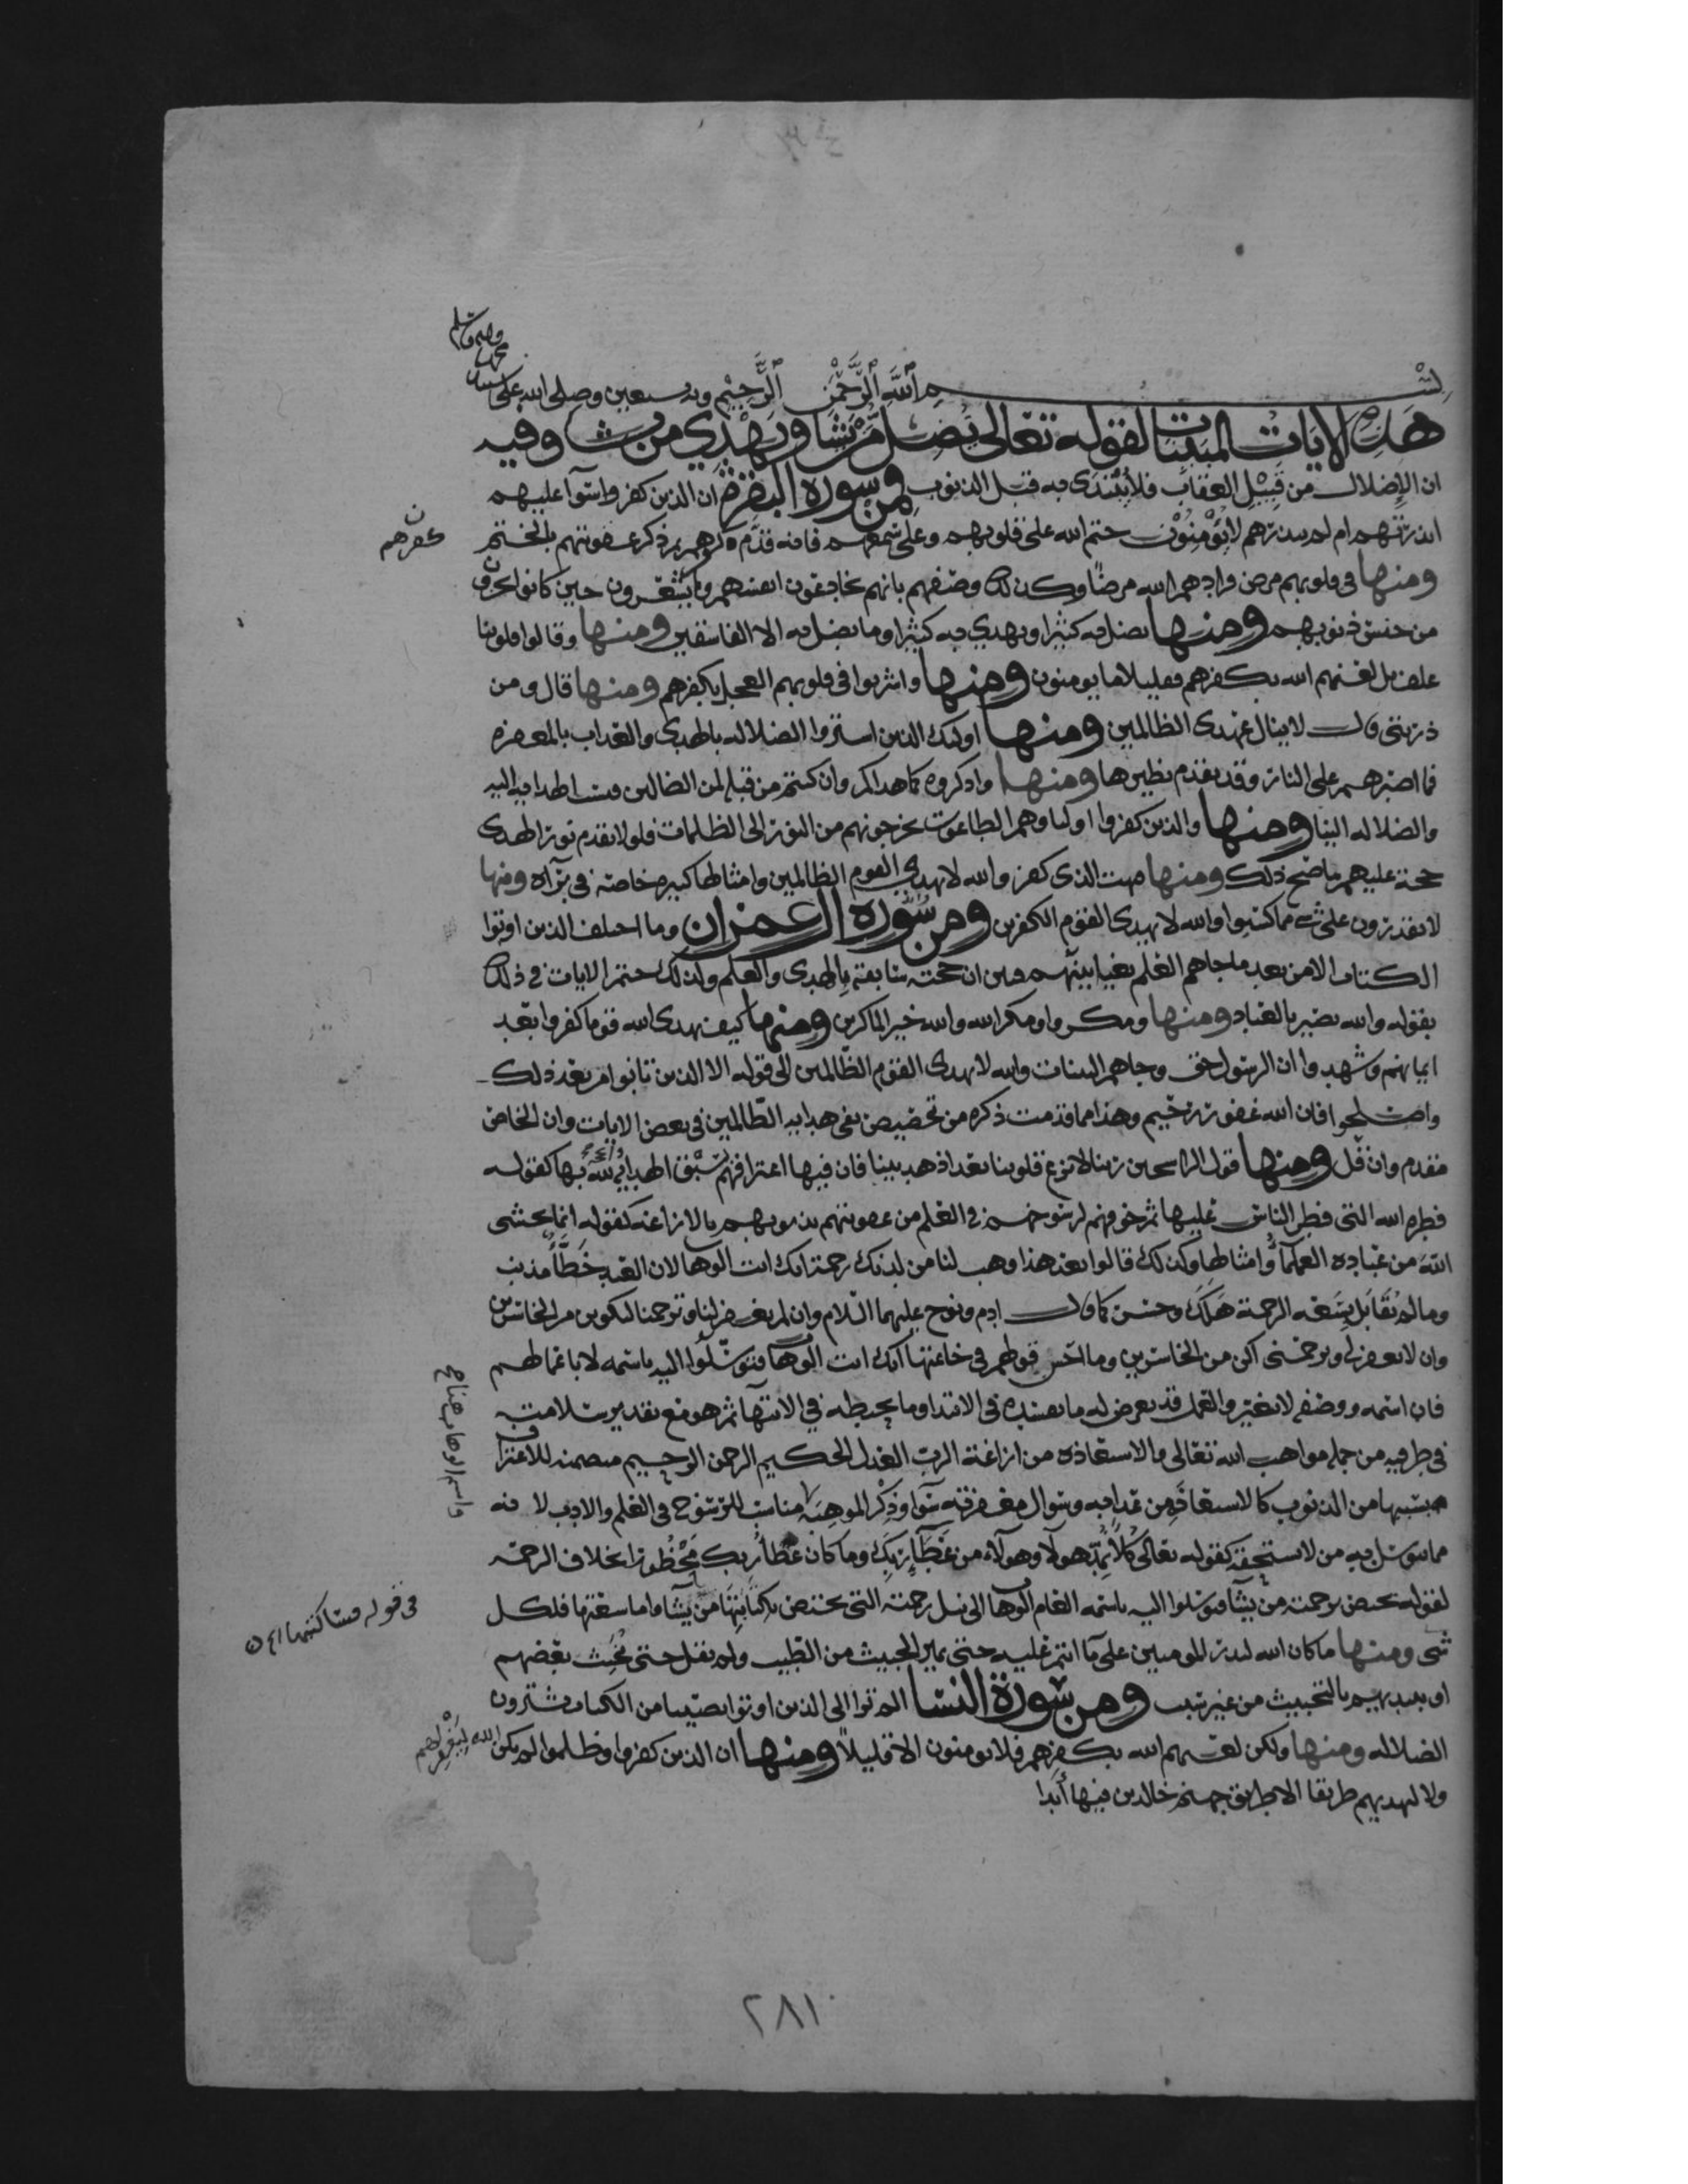 بسم الله الرحمن الرحيم وبه نستعين وصلى الله على سيدنا
محمد وآله وسلم
هذه الآيات المبينات لقوله تعالى يضل من يشا ويهدي من يشا وفيه
ان الإضلال من قبيل العقاب فلا يبتدى به قبل الذنوب ومن سورة البقرة ان الذين كفروا سوآ عليهم
انذرتهم ام لم تنذرهم لا يؤمنون ختم الله على قلوبهم وعلى سمعهم فانه قدم ذكر كفرهم ثم ذكر عقوبتهم بالختم
ومنها في قلوبهم مرض فزادهم الله مرضا وكذلك وصفهم بانهم يخادعون انفسهم وما يشعرون حين كانوا
من جنس ذنوبهم ومنها يضل به كثيرا ويهدي به كثيرا وما يضل به الا الفاسقين ومنها وقالوا قلوبنا
غلف بل لعنهم الله بكفرهم فقليلا ما يومنون ومنها واشربوا في قلوبهم العجل بكفرهم ومنها قال ومن
ذريتي قال لا ينال عهدى الظالمين ومنها اولئك الذين اشتروا الضلاله بالهدى والعذاب بالمغفره
فما اصبرهم على النار وقد تقدم نظيرها ومنها واذكروه كما هداكم وان كنتم من قبله لمن الضالين فنسب الهدايه اليه
والضلاله الينا ومنها والذين كفروا اولياوهم الطاغوت يخرجونهم من النور الى الظلمات فلولا تقدم نور الهدى
حجة عليهم ما صح ذلك ومنها فبهت الذى كفر والله لا يهدي القوم الظالمين وامثالها كثيره خاصة في برآه ومنها
لا يقدرون على شي مما كسبوا والله لا يهدى القوم الكفرين ومن سورة ال عمران وما اختلف الذين اوتوا
الكتاب الا من بعد ما جاهم العلم بغيا بينهم فبين ان حجته سابقة بالهدى والعلم ولذلك ختم الايات في ذلك
بقوله والله بصير بالعباد ومنها ومكروا ومكر الله والله خير الماكرين ومنها كيف يهدى الله قوما كفروا بعد
ايمانهم وشهدوا ان الرسول حق وجاهم البينات والله لا يهدى القوم الظالمين الى قوله الا الذين تابوا من بعد ذلك
واصلحوا فان الله غفور رحيم وهذا مما قدمت ذكره من تخصيص نفي هدايه الظالمين في بعض الايات وان الخاص
مقدم وان قل ومنها قول الراسخين ربنا لا تزغ قلوبنا بعد اذ هديتنا فان فيها اعترافهم بسبق الهدايه لهم بها كقوله
فطره الله التي فطر الناس عليها ثم خوفهم لرسوخهم في العلم من عقوبتهم بذنوبهم بالازاغه كقوله انما يخشى
الله من عباده العلمآ وامثالها وكذلك قالوا بعد هذا وهب لنا من لدنك رحمة انك انت الوهاب لان العبد خطأ مذنب
وما لم يقابل بسعه الرحمة هلك وخسر كما قال ادم ونوح عليهما السلام وان لم تغفر لنا وترحمنا لنكونن من الخاسرين
وان لا تغفر لي وترحمني اكن من الخاسرين وما احسن قولهم في خاتمتها انك انت الوهاب فتوسلوا اليه باسمه لا باعمالهم
فان اسمه ووصفه لا يتغير والعمل قد يعرض له ما يفسده في الابتدا وما يحبطه في الانتهآ ثم هو مع تقدير سلامته
في طرفيه من جمله مواهب الله تعالى والاستعاذه من ازاغة الرب العدل الحكيم الرحمن الرحيم متضمنه للاعتراف
بسببها من الذنوب كالاستعاذه من عذابه وسوال مغفرته سوا وذكر الموهبه مناسب للرسوخ في العلم والادب لانه
مما يتوسل به من لا يستحقه كقوله تعالى كلا نمد هولا وهولاء من عطآ ربك وما كان عطآ ربك محظورا بخلاف الرحمه
لقوله يختص برحمته من يشآ فتوسلوا اليه باسمه العام الوهاب الى نيل رحمته التي يختص بكتابتها من يشآ واما سعتها فلكل
شى ومنها ما كان الله ليذر المومنين على مآ انتم عليه حتى يميز الخبيث من الطيب ولم يقل حتى يخبث بعضهم
او يبتديهم بالتخبيث من غير سبب ومن سورة النسا الم تر الى الذين اوتوا نصيبا من الكتاب يشترون
الضلاله ومنها ولكن لعنهم الله بكفرهم فلا يومنون الا قليلا ومنها ان الذين كفروا وظلموا لم يكن الله ليغفر لهم
ولا ليهديهم طريقا الا طريق جهنم خالدين فيها أبدا
كفرهم
واسم الوهاب هنا
في قوله فسأكتبها
٢٨١